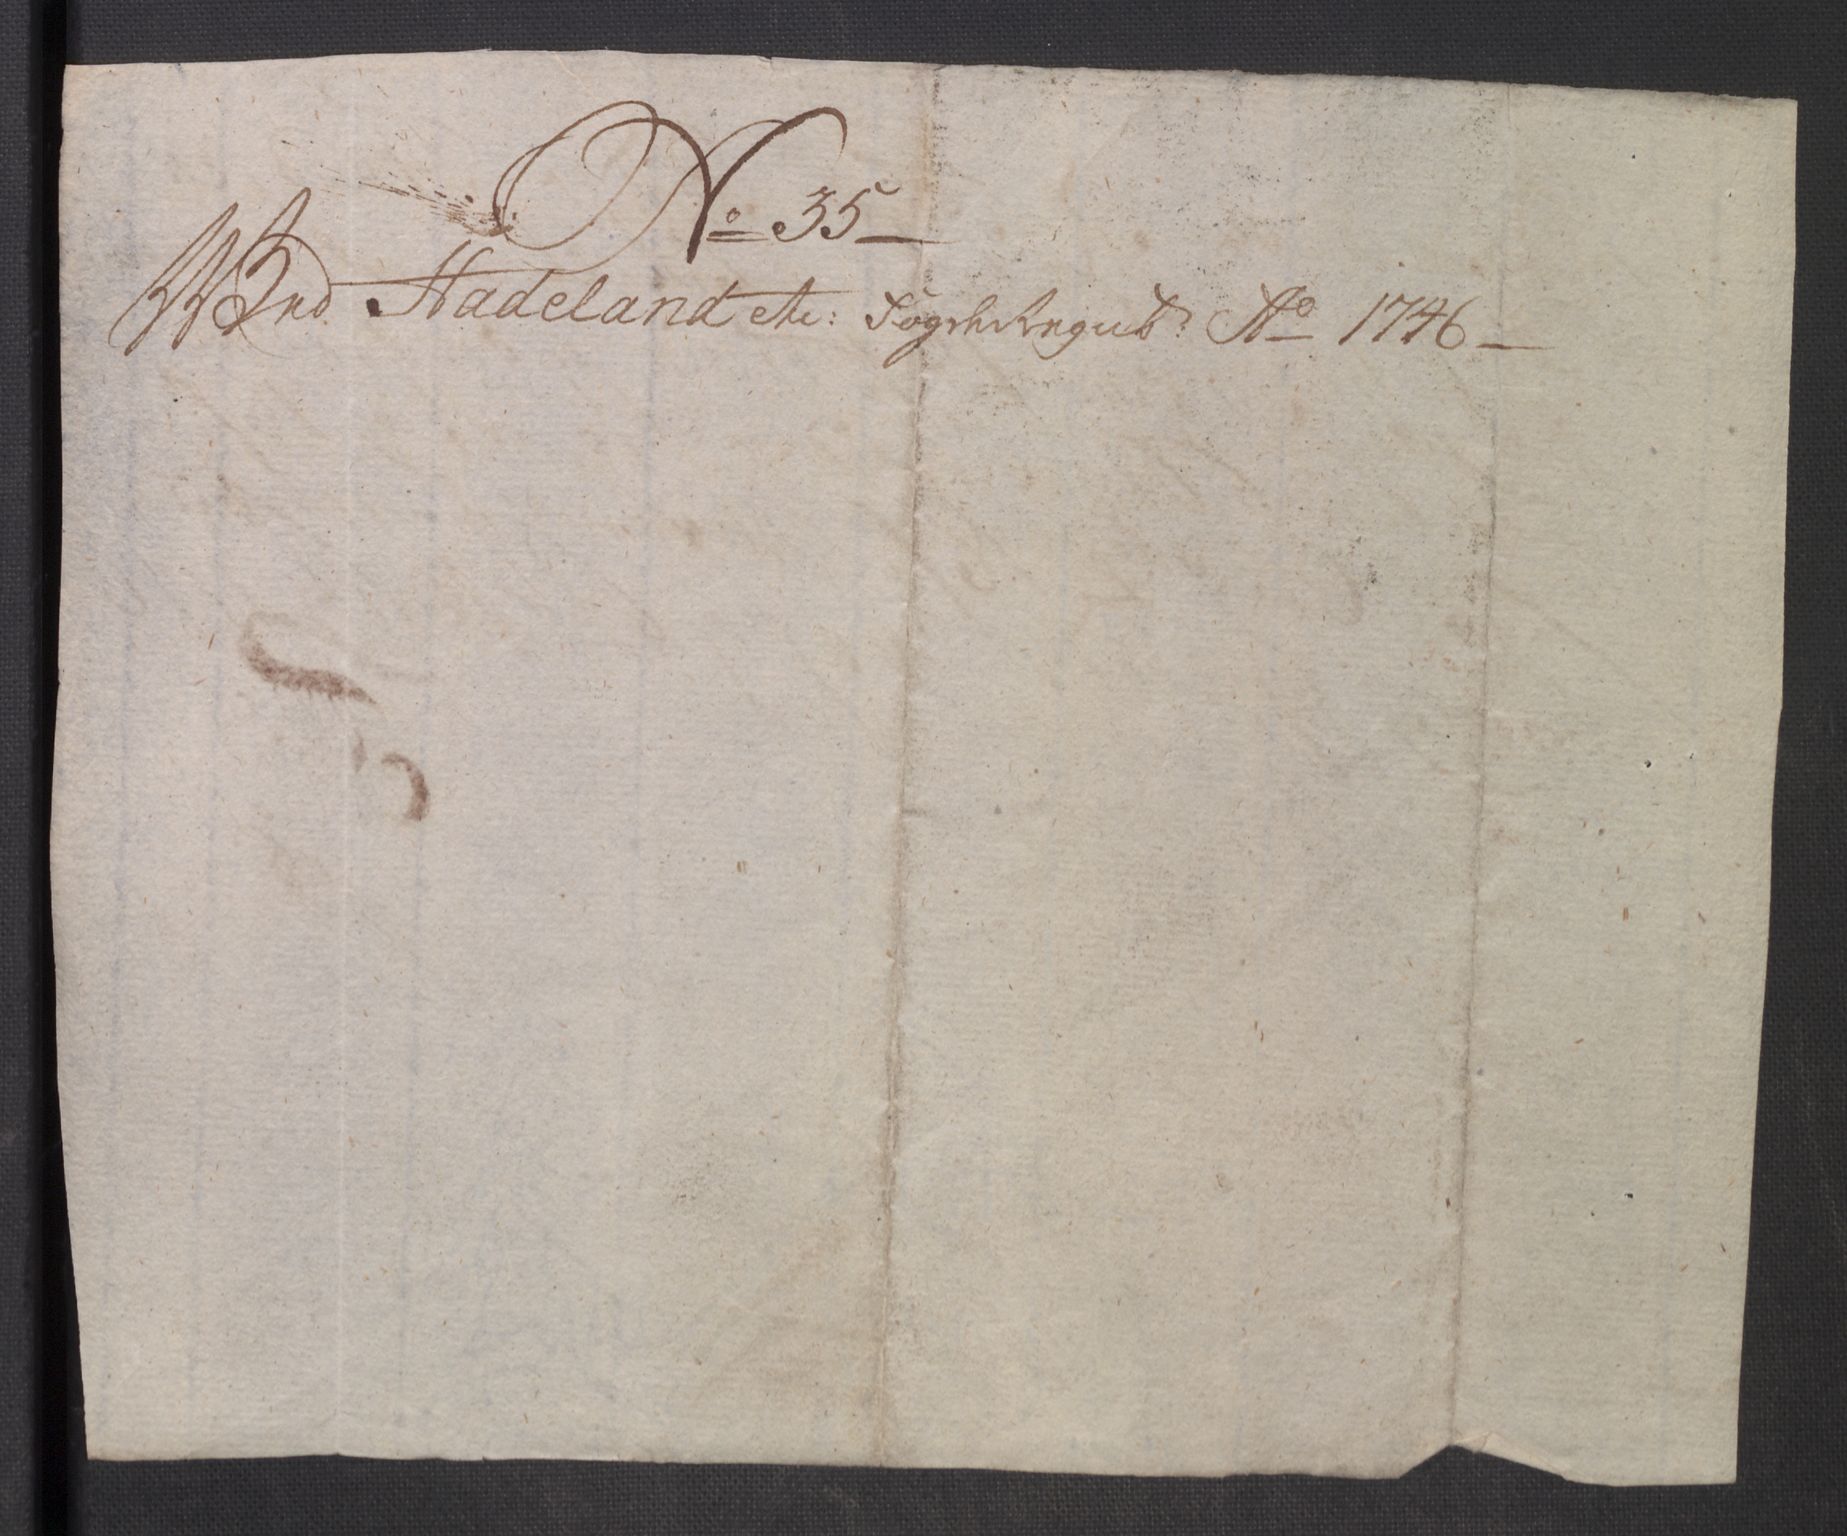 No 35
Wed Hadeland etc: Fogderegnsk: Ao 1746